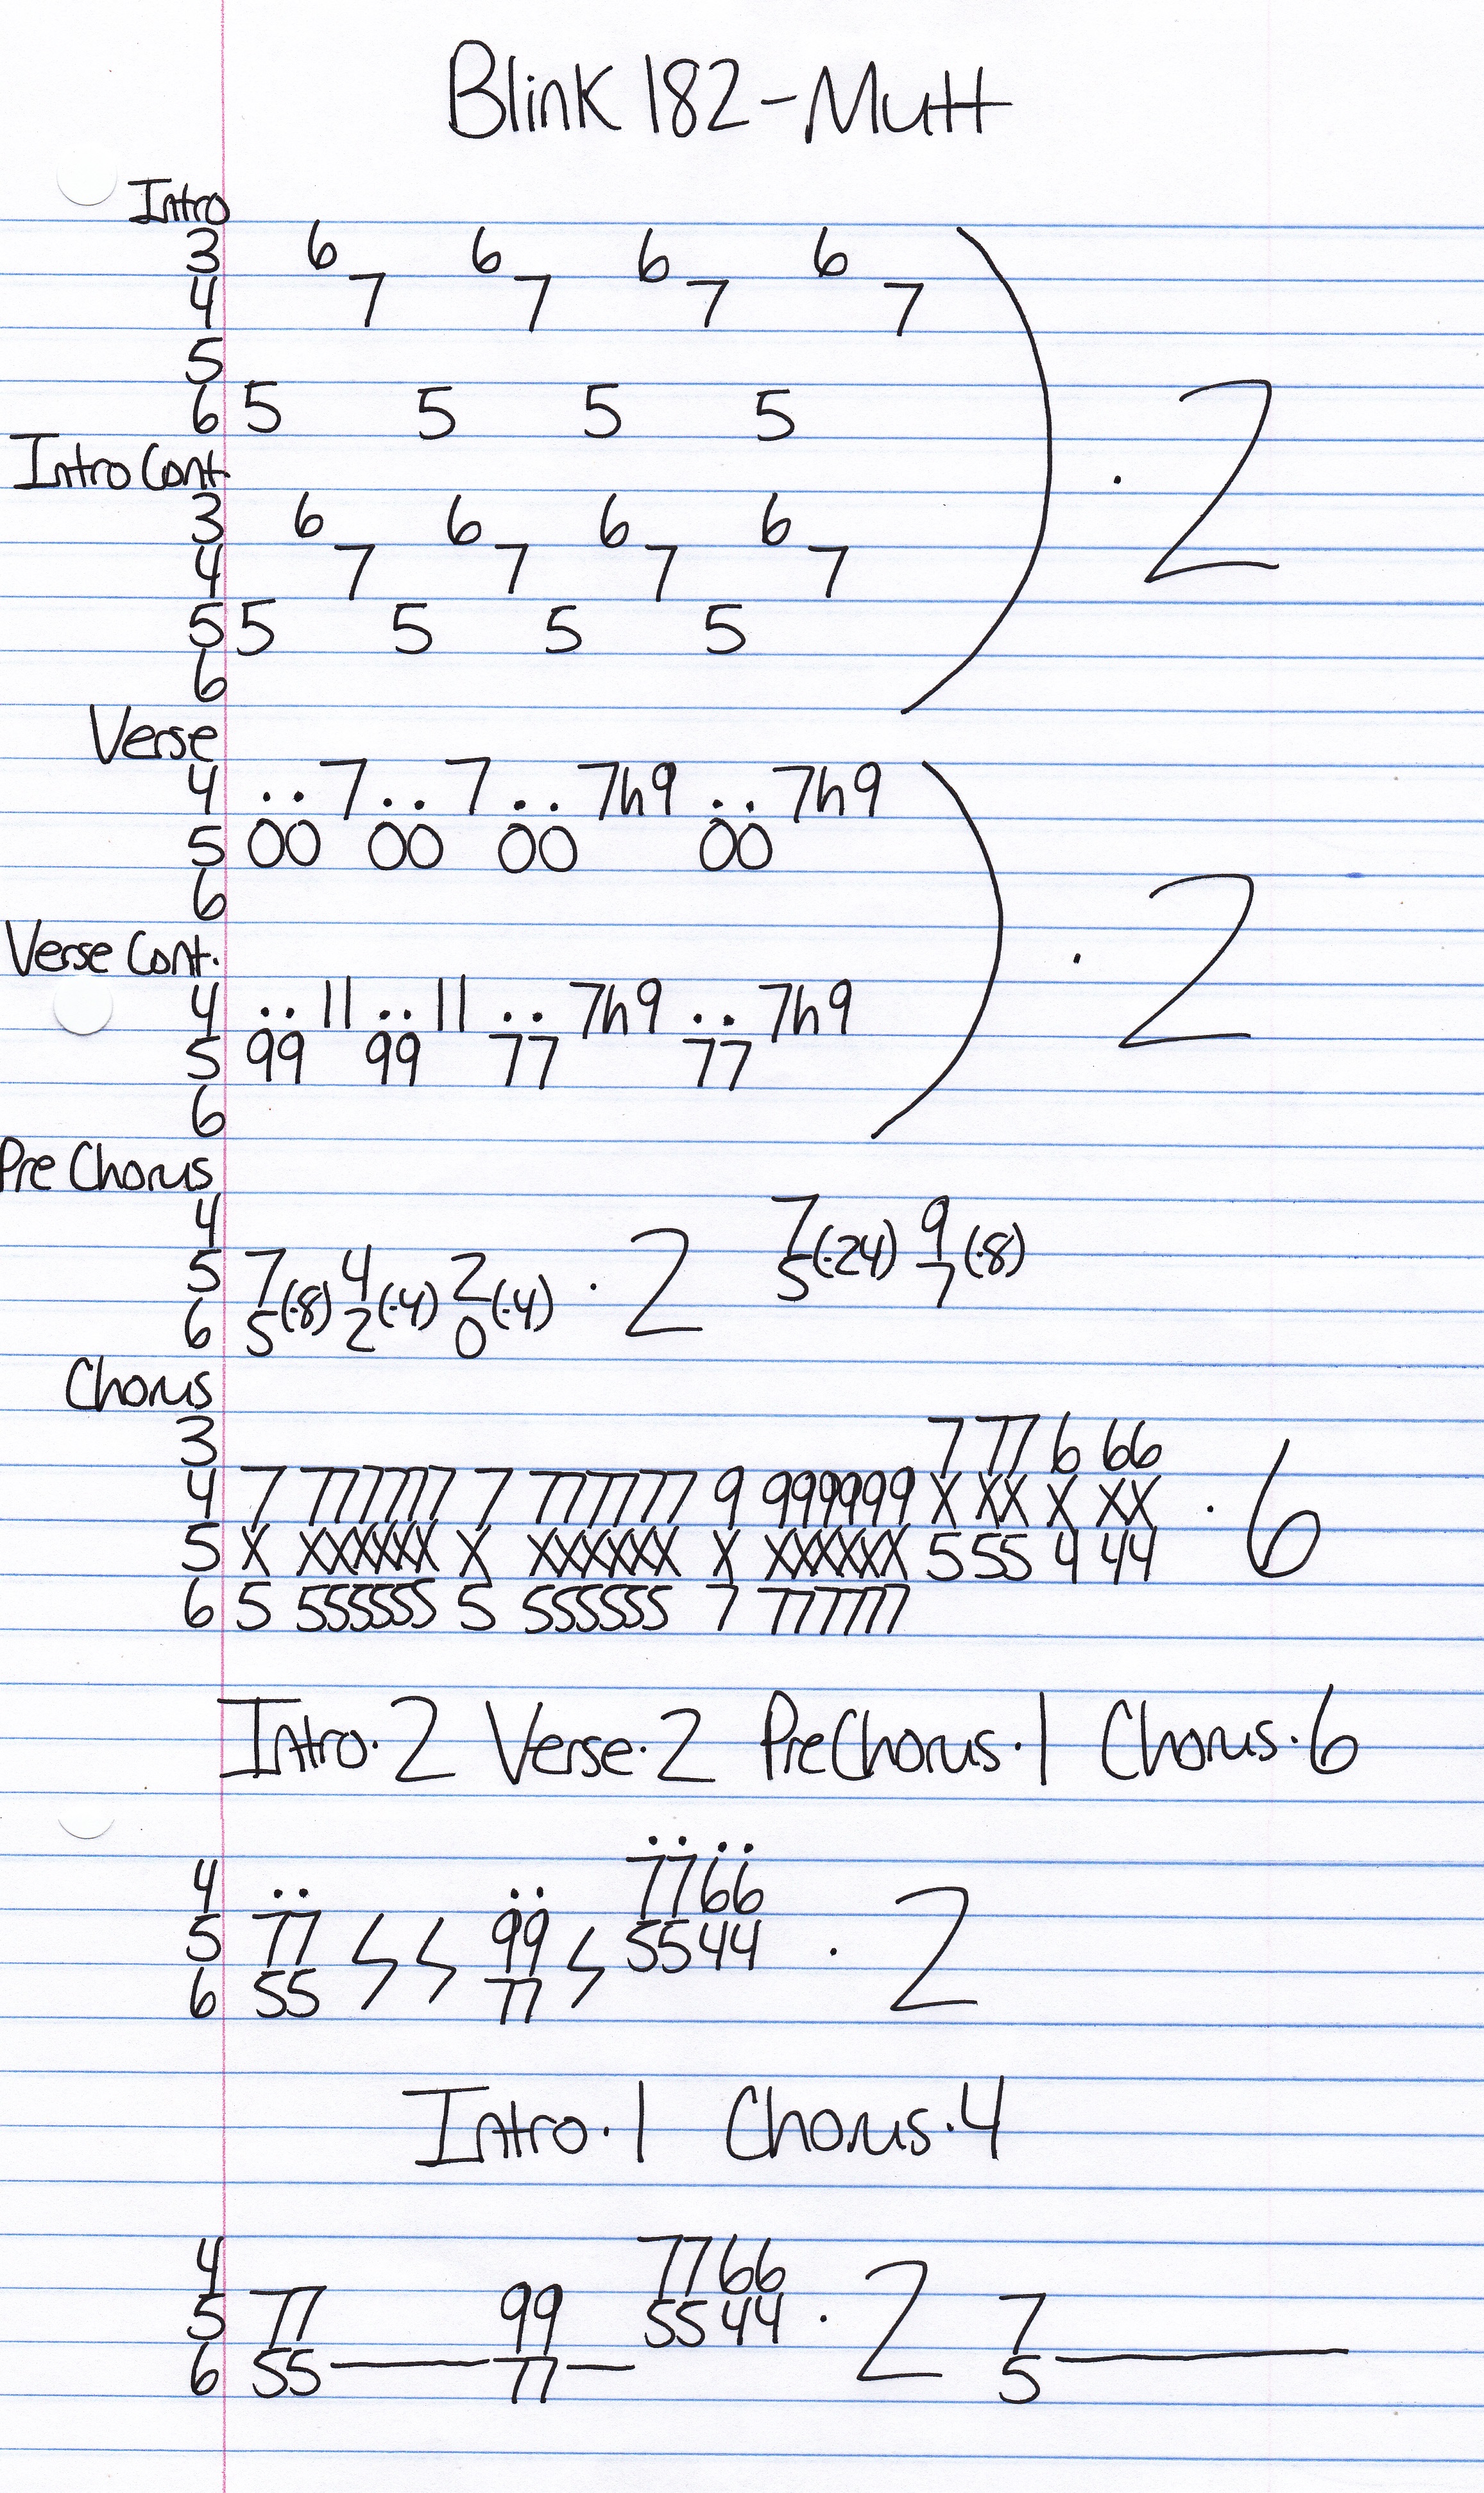 Blink 182-Mutt
Intro
3 6 6 6 6
4 7 7 7 7
5
6 5 5 5 5
· 2
Intro Cont.
3 6 6 6 6
4 7 7 7 7
5 5 5 5 5
6
Verse
4 . . 7 . . 7 . . 7h9 . . 7h9
5 00 00 00 00
6
· 2
Verse Cont.
4 . . 11 . . 11 . . 7h9 . . 7h9
5 99 99 77 77
6
Pre Chorus
4 7 9
5 7 4 2 · 2 5 (·24) 7 (·8)
6 5 (·8) 2 (·4) 0 (·4)
Chorus
3 7 77 6 66
4 7 777777 7 777777 9 999999 X XX X XX · 6
5 X XXXXXX X XXXXXX X XXXXXX 5 55 4 44
6 5 555555 5 555555 7 777777
Intro·2 Verse·2 PreChorus·1 Chorus·6
4 7766
5 77 99 5544 · 2
6 55 77
Intro·1 Chorus·4
4 7766
5 77 99 5544 · 2 7
6 55 — 77 — 5 —